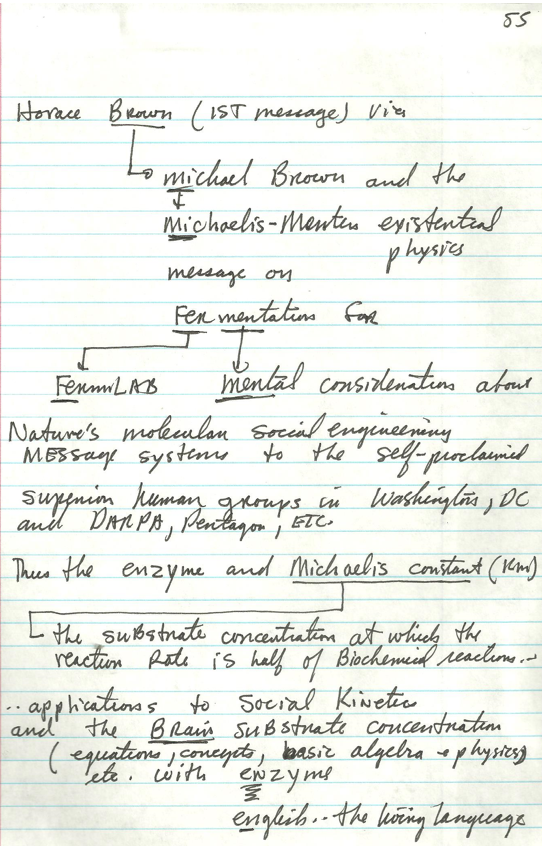 55
Horace Brown (1ST message) via
Michael Brown and the
Michaelis-Menten existential
physics
message on
Fermentation for
FermiLAB mental consideration about
Nature's molecular social engineering
MESSage systems to the self-proclaimed
superior human groups in Washington, DC
and DARPA, Pentagon, ETC.
Thus the enzyme and Michaelis constant (Km)
the suBstrate concentration at which the
reaction Rate is half of Biochemical reactions..
.. applications to Social Kinetics
and the Brain suBstrate concentration
(equations, concepts, basic algebra + physics)
etc. with enzyme
english.. the living language